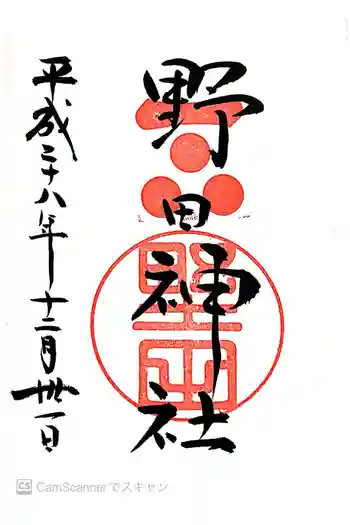 野田神社
平成二十八年十二月卅一日
野田
CS CamScannerでスキャン